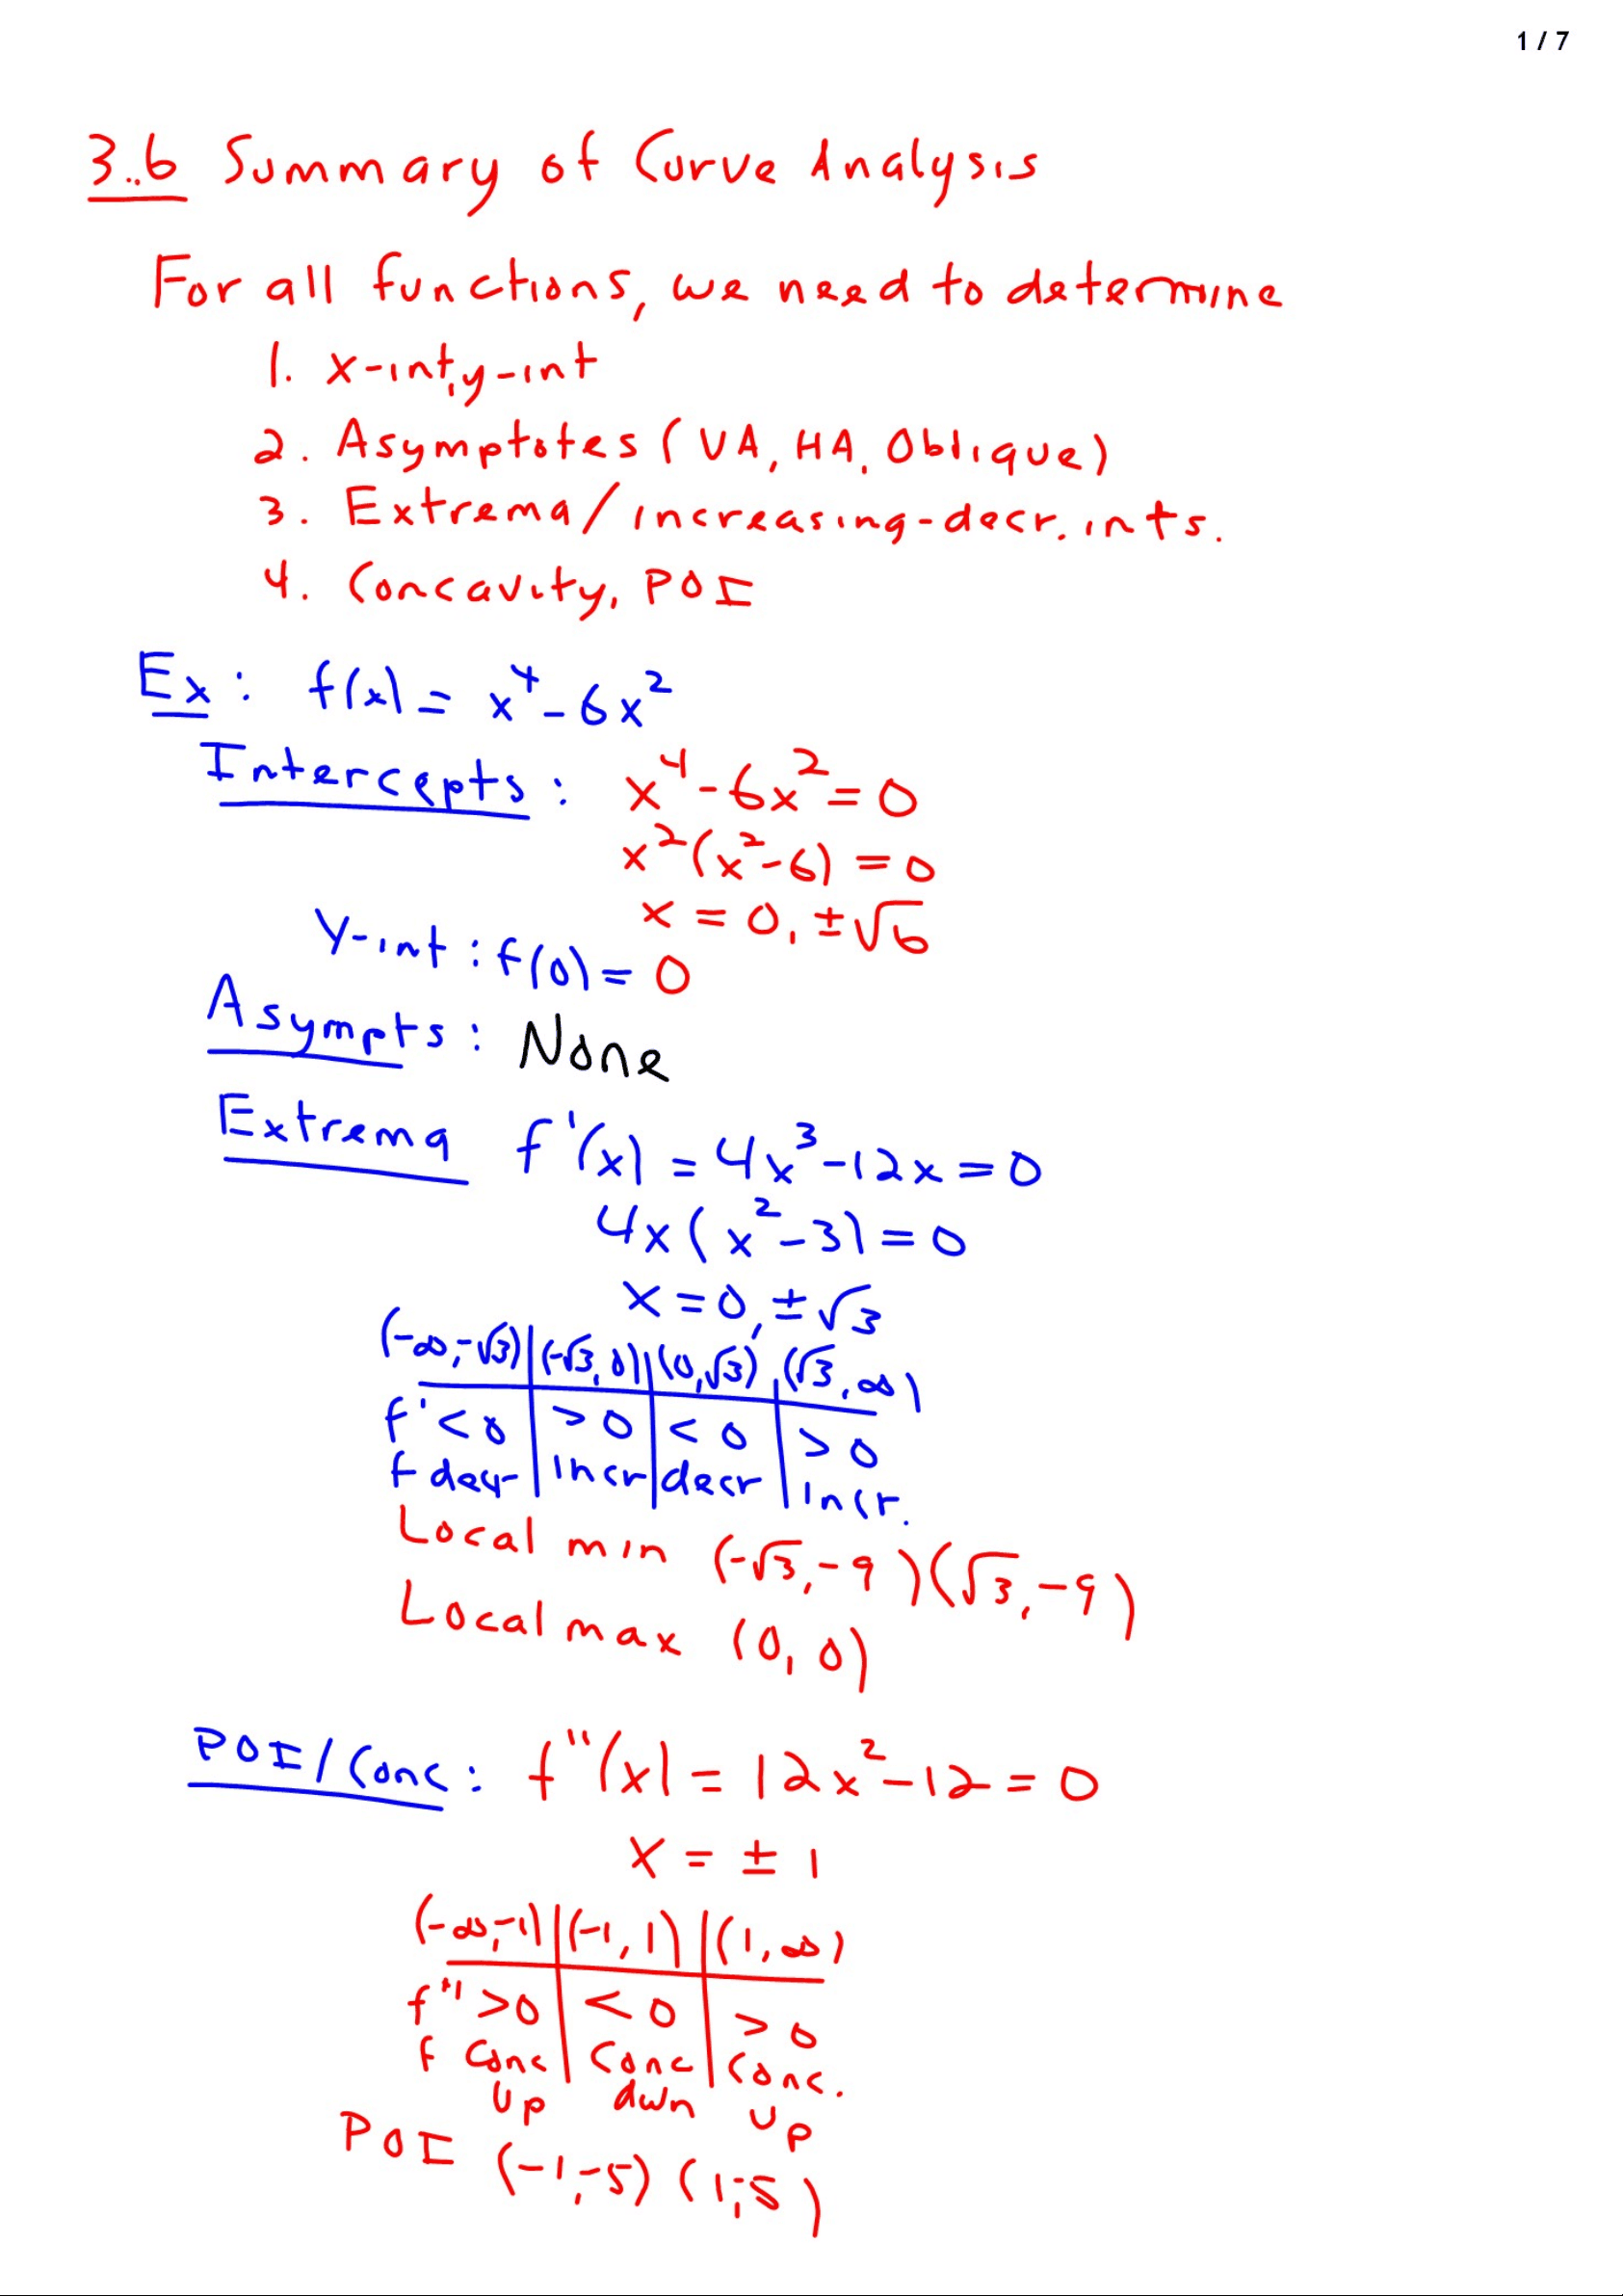 1 / 7
3.6 Summary of Curve Analysis
For all functions, we need to determine
1. x-int, y-int
2. Asymptotes (VA, HA, Oblique)
3. Extrema/increasing-decr. ints.
4. Concavity, POI
Ex: f(x) = x⁴ - 6x²
Intercepts: x⁴ - 6x² = 0
x²(x² - 6) = 0
x = 0, ±√6
Y-int: f(0) = 0
Asympts: None
Extrema f'(x) = 4x³ - 12x = 0
4x(x² - 3) = 0
x = 0, ±√3
(-∞, -√3) | (-√3, 0) | (0, √3) | (√3, ∞)
f' < 0 | > 0 | < 0 | > 0
f decr | incr | decr | incr.
Local min (-√3, -9) (√3, -9)
Local max (0, 0)
POI/Conc: f''(x) = 12x² - 12 = 0
x = ± 1
(-∞, -1) | (-1, 1) | (1, ∞)
f'' > 0 | < 0 | > 0
f Conc | Conc | Conc.
up dwn up
POI (-1, -5) (1, -5)